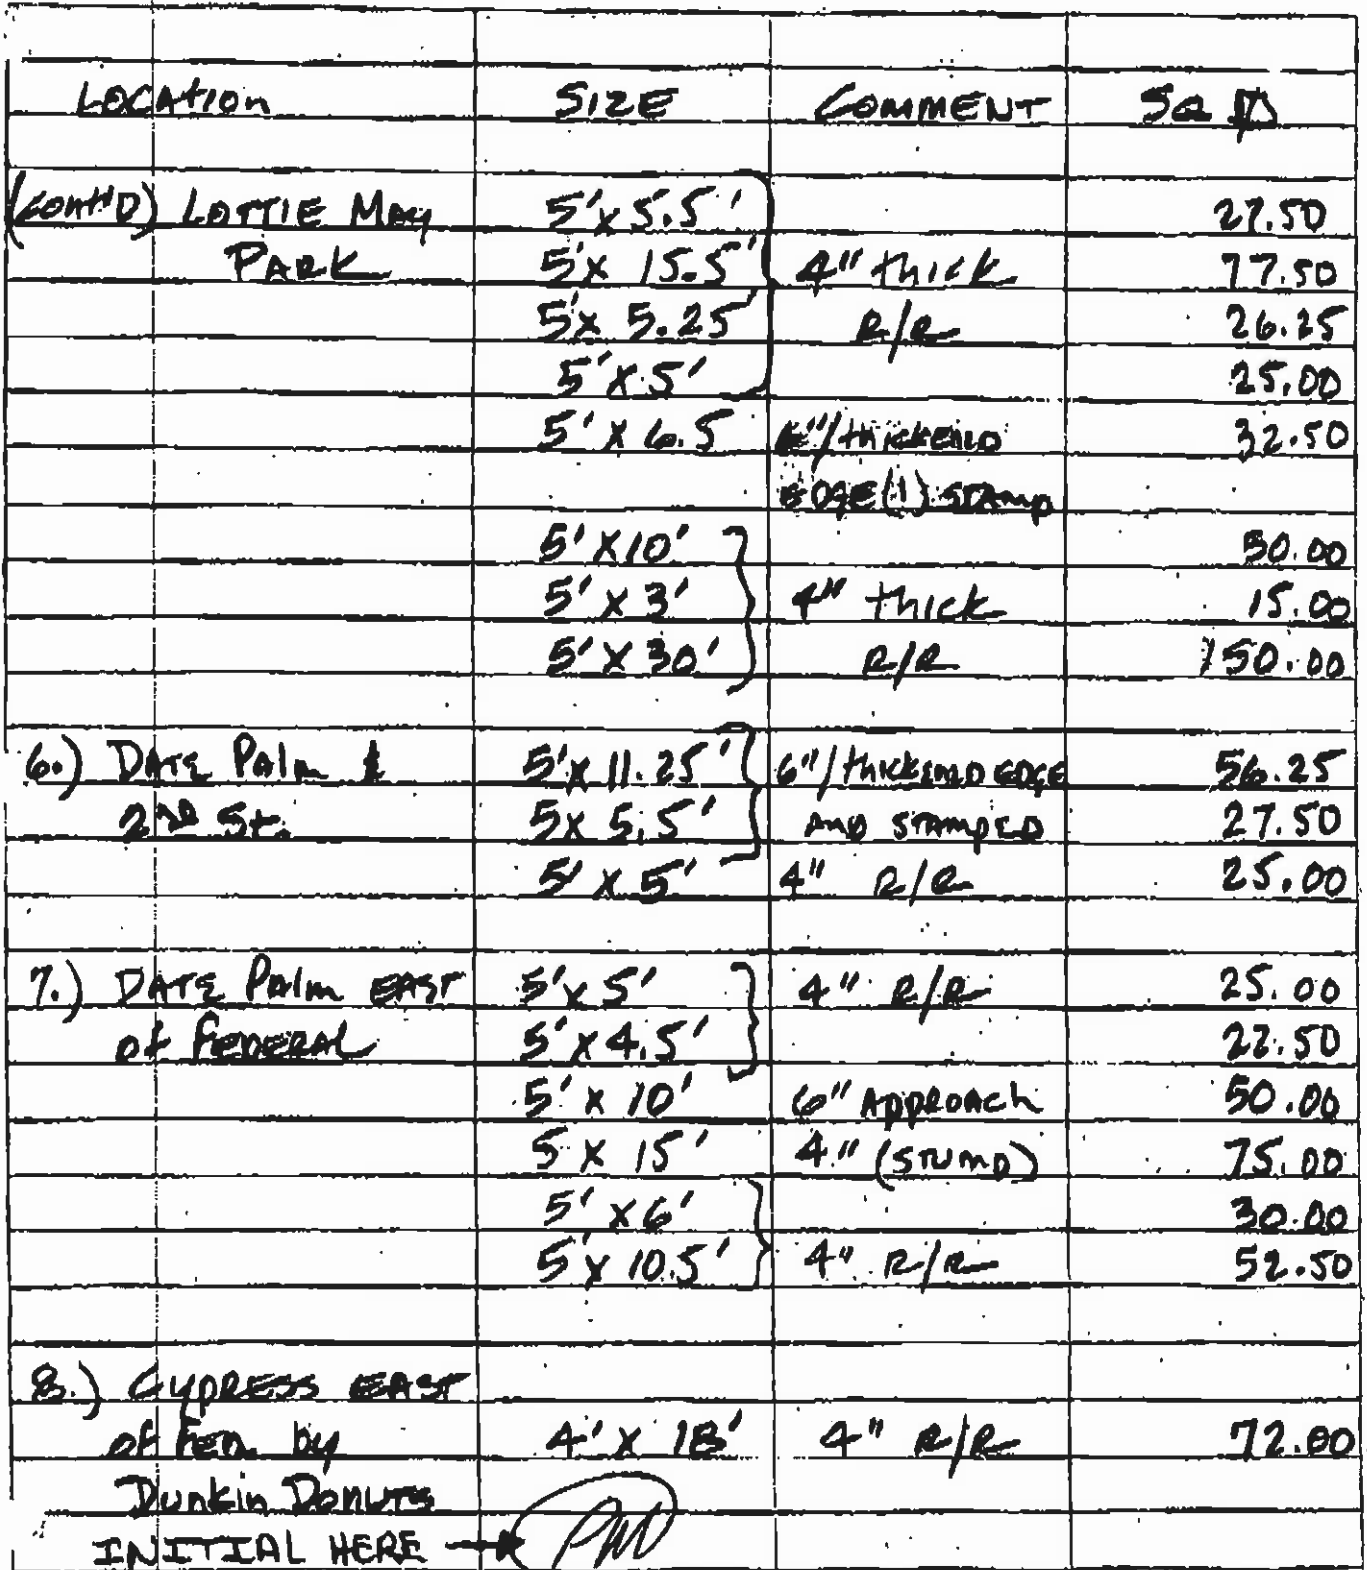 LOCATION SIZE COMMENT SQ
(CONT'D) LOTTIE MAY 5'x 5.5' 27.50
PARK 5'x 15.5' 4" thick 77.50
5'x 5.25' R/R 26.25
5'x 5' 25.00
5' x 6.5 6"/thickened 32.50
EDGE (1) STAMP
5' x 10' 50.00
5' x 3' 4" thick 15.00
5' x 30' R/R 150.00
6.) DATE PALM & 5'x 11.25' 6"/thickened EDGE 56.25
2ND St. 5x 5.5' AND STAMPED 27.50
5' x 5' 4" R/R 25.00
7.) DATE PALM EAST 5'x 5' 4" R/R 25.00
of FEDERAL 5' x 4.5' 22.50
5' x 10' 6" APPROACH 50.00
5 x 15' 4" (STUMP) 75.00
5' x 6' 30.00
5'x 10.5' 4" R/R 52.50
8.) CYPRESS EAST
of FED. by 4' x 18' 4" R/R 72.00
Dunkin DONUTS
INITIAL HERE →